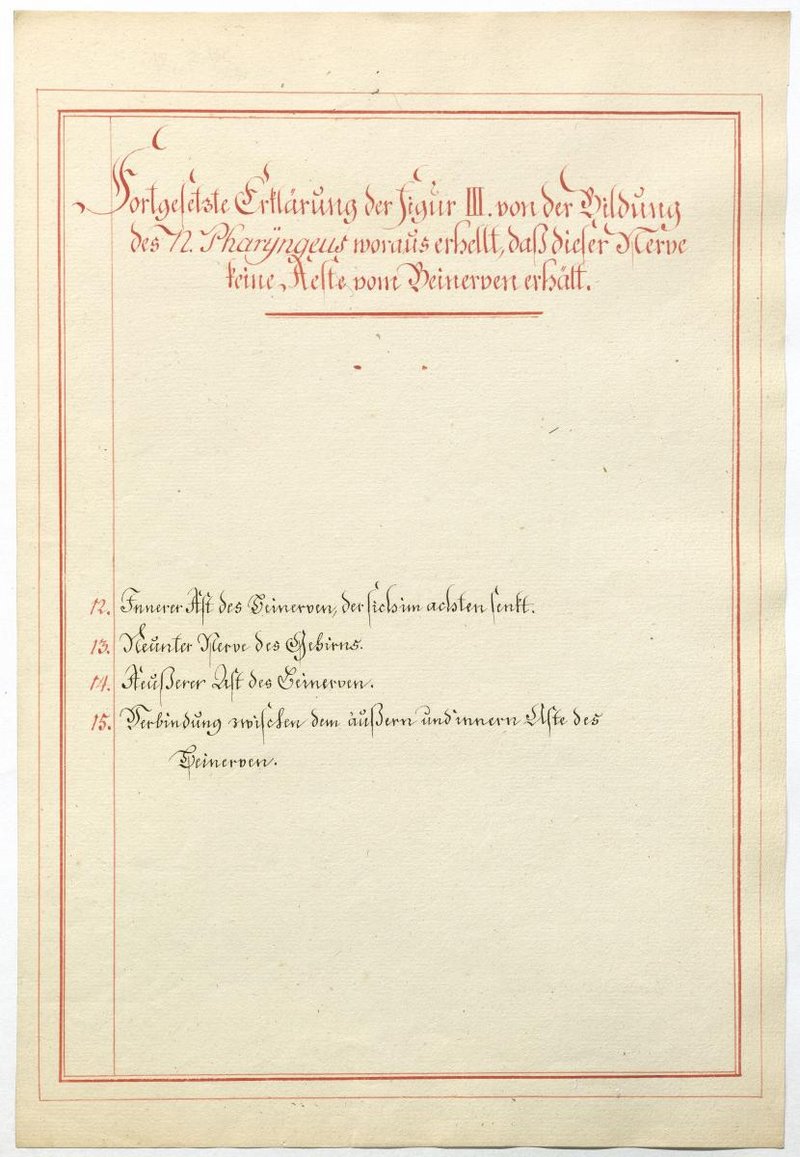 Fortgesetzte Erklärung der Figur III. von der Bildung
des N. Pharÿngeus woraus erhellt, daß dieser Nerve
keine Aeste vom Beinerven erhält.
12. Innerer Ast des Beinerven, der sich im achten senkt.
13. Neunter Nerve des Gehirns.
14. Aeußerer Ast des Beinerven.
15. Verbindung zwischen dem äußern und innern Aste des
Beinerven.